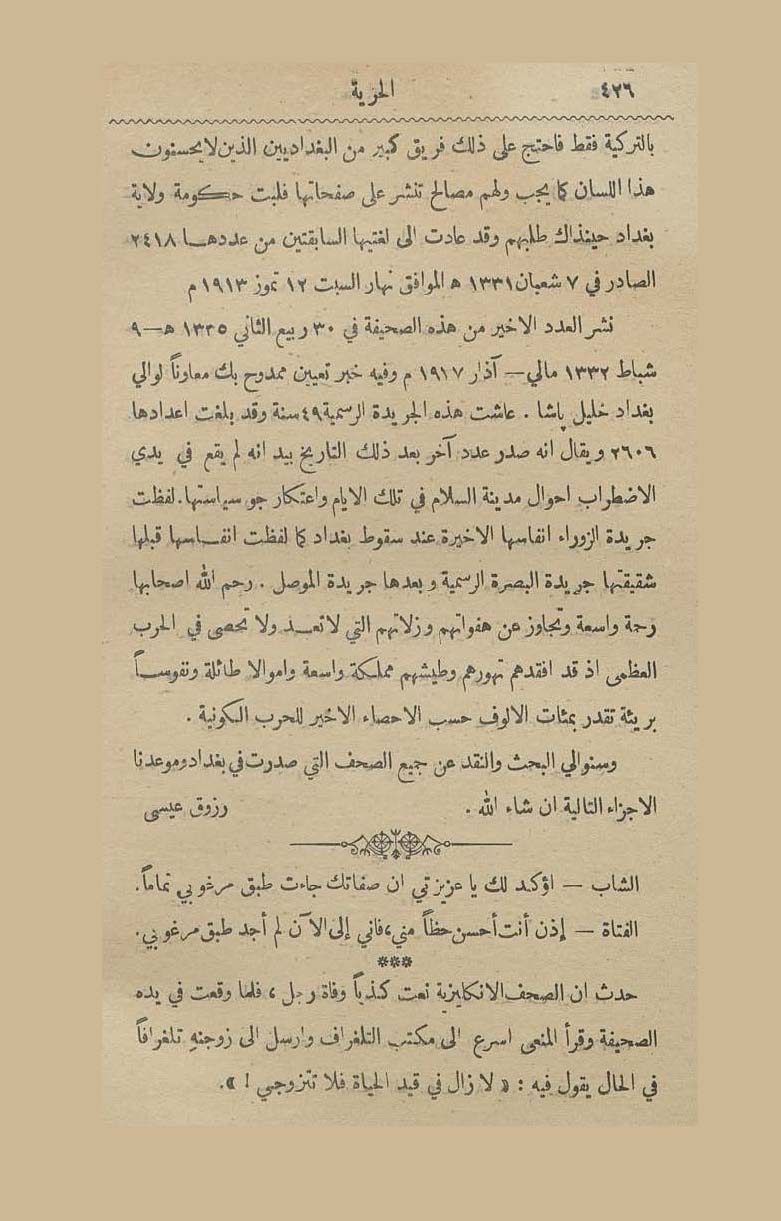 ٤٢٦
الحرية
بالتركية فقط فاحتج على ذلك فريق كبير من البغداديين الذين لا يحسنون
هذا اللسان كما يجب ولهم مصالح تنشر على صفحاتها فلبت حكومة ولاية
بغداد حينذاك طلبهم وقد عادت الى لغتيها السابقتين من عددها ٢٤١٨
الصادر في ٧ شعبان ١٣٣١ ه الموافق نهار السبت ١٢ تموز ١٩١٣ م
نشر العدد الاخير من هذه الصحيفة في ٣٠ ربيع الثاني ١٣٣٥ ه — ٩
شباط ١٣٣٢ مالي — آذار ١٩١٧ م وفيه خبر تعيين ممدوح بك معاوناً لوالي
بغداد خليل پاشا . عاشت هذه الجريدة الرسمية ٤٩ سنة وقد بلغت اعدادها
٢٦٠٦ ويقال انه صدر عدد آخر بعد ذلك التاريخ بيد انه لم يقع في يدي
الاضطراب احوال مدينة السلام في تلك الايام واعتكار جو سياستها . لفظت
جريدة الزوراء انفاسها الاخيرة عند سقوط بغداد كما لفظت انفاسها قبلها
شقيقتها جريدة البصرة الرسمية وبعدها جريدة الموصل . رحم الله اصحابها
رحمة واسعة وتجاوز عن هفواتهم وزلاتهم التي لا تعد ولا تحصى في الحرب
العظمى اذ قد افقدهم تهورهم وطيشهم مملكة واسعة واموالا طائلة ونفوساً
بريئة تقدر بمئات الالوف حسب الاحصاء الاخير للحرب الكونية .
وسنوالي البحث والنقد عن جميع الصحف التي صدرت في بغداد وموعدنا
الاجزاء التالية ان شاء الله .     رزوق عيسى
الشاب — اؤكد لك يا عزيزتي ان صفاتك جاءت طبق مرغوبي تماماً .
الفتاة — إذن أنت أحسن حظاً مني ، فاني إلى الآن لم أجد طبق مرغوبي .
***
حدث ان الصحف الانكليزية نعت كذباً وفاة رجل ، فلما وقعت في يده
الصحيفة وقرأ المنعى اسرع الى مكتب التلغراف وارسل الى زوجته تلغرافاً
في الحال يقول فيه : « لا زال في قيد الحياة فلا تتزوجي ! » .